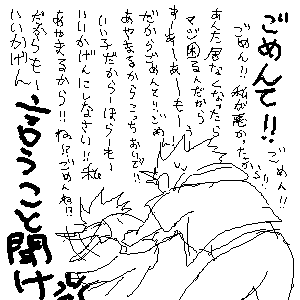 ごめんて!!
ごめん!!
ごめん!! 私が悪かったから!!
あんた居なくなったら
マジ困るんだから
すーあーあーもーぅ
だからごめんて!!ごめん
あやまるからこっちおいで!!
いい子だからーほらーもー
いいかげんにしなさい!!私
あやまるから!!ね!?ごめんね!?
だからもー
いいかげん
言うこと聞け